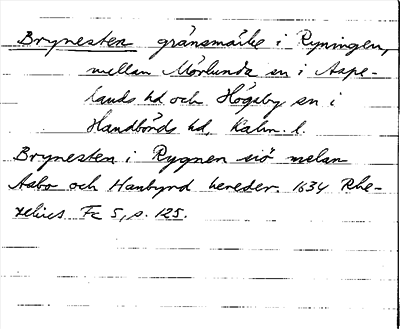 Brynesten gränsmärke i Ryningen,
mellan Mörlunda sn i Aspe-
lands hd och Högsby sn i
Handbörds hd, Kalm. l.
Brynesten i Rygnen siö melan
Asbo och Hanbyrd hereder. 1634 Rhe-
zelius Fc 5, s. 125.